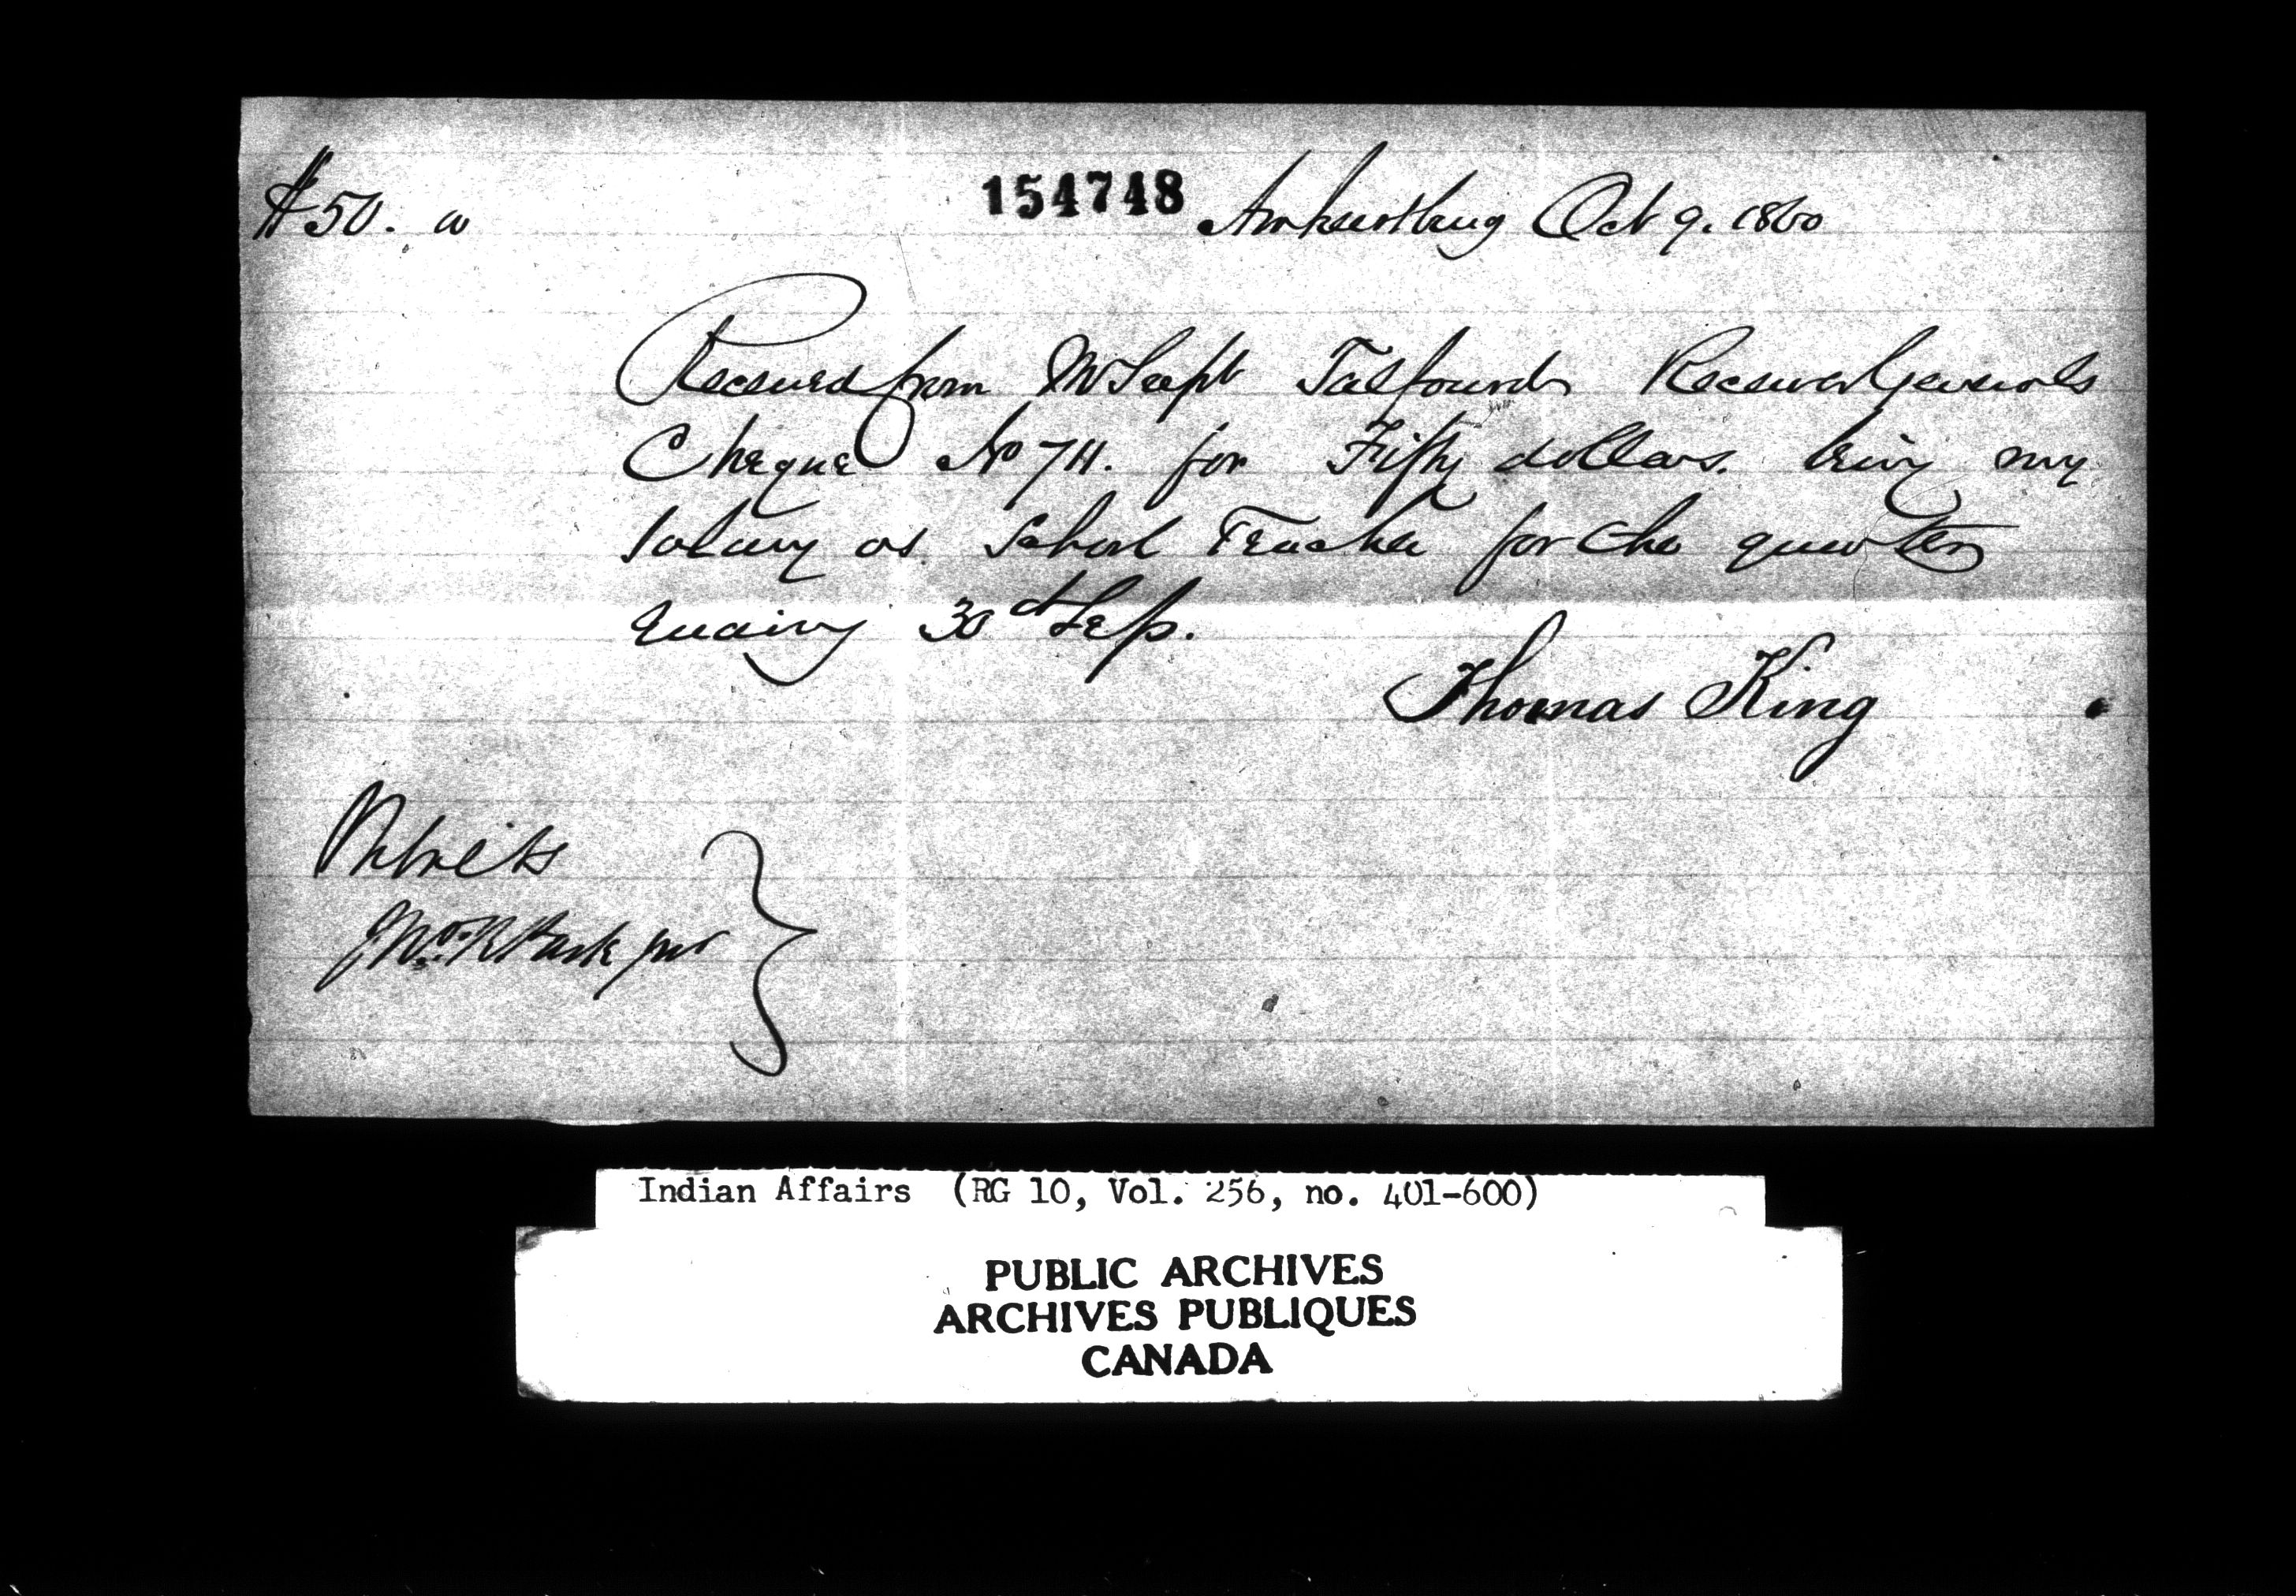 $50. 00
154748 Amherstburg Oct 9. 1860
Received from Mr Sept Talfourd Receiver Generals
Cheque No 711. for Fifty dollars. being my
Salary as School Teacher for the quarter
Ending 30th Sep.
Thomas King
Witness
Park jnr
Indian Affairs (RG 10, Vol. 256, no. 401-600)
PUBLIC ARCHIVES
ARCHIVES PUBLIQUES
CANADA